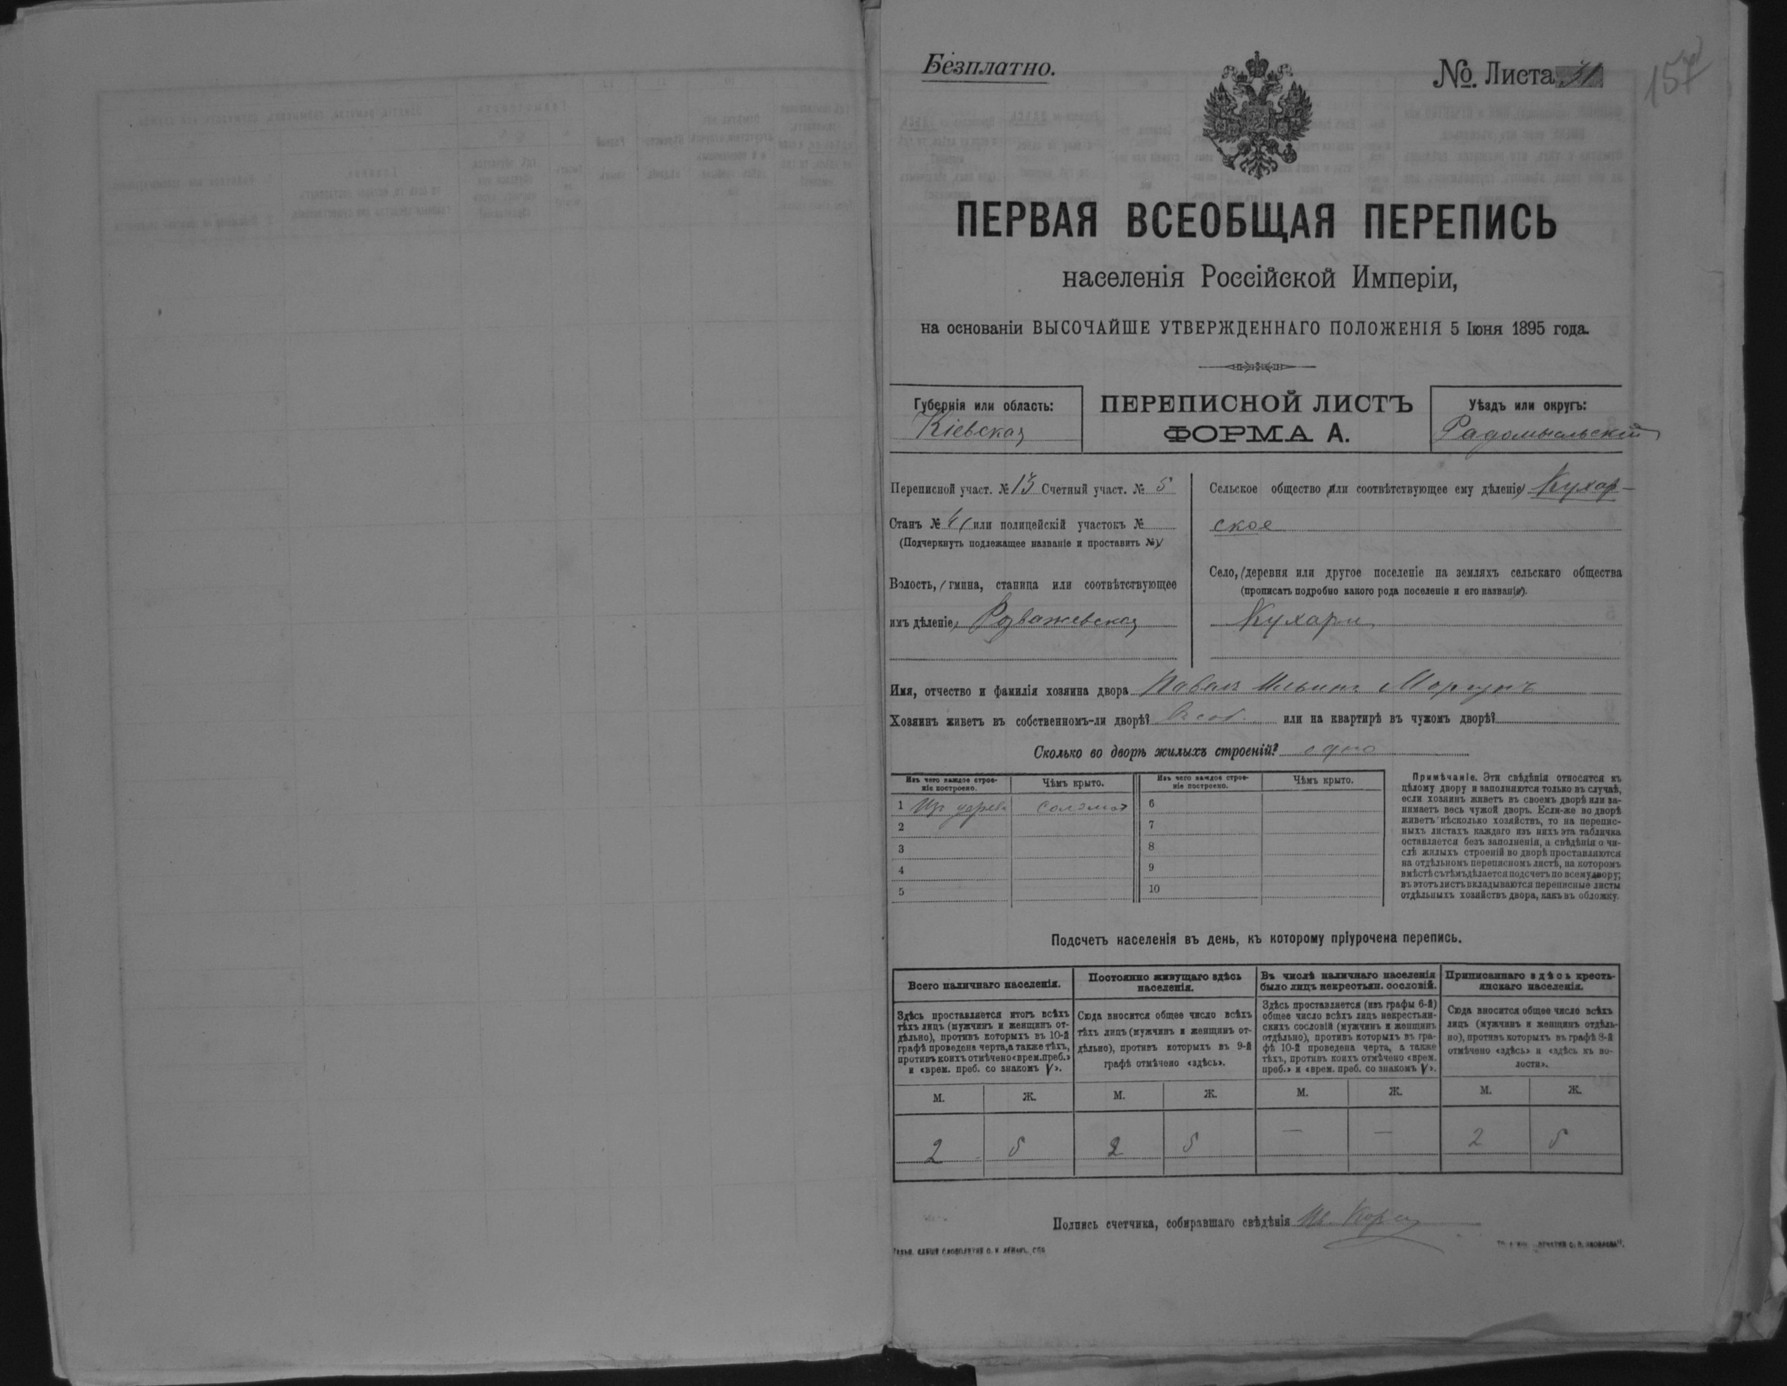 Безплатно.
№. Листа 31
157
ПЕРВАЯ ВСЕОБЩАЯ ПЕРЕПИСЬ
населенія Россійской Имперіи,
на основаніи ВЫСОЧАЙШЕ УТВЕРЖДЕННАГО ПОЛОЖЕНІЯ 5 Іюня 1895 года.
Губернія или область:
Кіевская
ПЕРЕПИСНОЙ ЛИСТЪ
ФОРМА А.
Уѣздъ или округъ:
Радомысльскій
Переписной участ. № 13 Счетный участ. № 5
Станъ № или полицейскій участокъ №
(Подчеркнуть подлежащее названіе и проставить №)
Волость, гмина, станица или соотвѣтствующее
имъ дѣленіе, Розважевская
Сельское общество или соотвѣтствующее ему дѣленіе Кухар-
ское
Село, деревня или другое поселеніе на земляхъ сельскаго общества
(прописать подробно какого рода поселеніе и его названіе).
Кухари
Имя, отчество и фамилія хозяина двора Павелъ Ильинъ Моргунъ
Хозяинъ живетъ въ собственномъ-ли дворѣ? В соб. или на квартирѣ въ чужомъ дворѣ?
Сколько во дворѣ жилыхъ строеній? одно
Изъ чего каждое строе-
ніе построено.
Чѣмъ крыто.
Изъ чего каждое строе-
ніе построено.
Чѣмъ крыто.
1 Из дерева соломой 6
2 7
3 8
4 9
5 10
Примѣчаніе. Эти свѣдѣнія относятся къ
цѣлому двору и заполняются только въ случаѣ,
если хозяинъ живетъ въ своемъ дворѣ или за-
нимаетъ весь чужой дворъ. Если-же во дворѣ
живетъ нѣсколько хозяйствъ, то на перепис-
ныхъ листахъ каждаго изъ нихъ эта табличка
оставляется безъ заполненія, а свѣдѣнія о чи-
слѣ жилыхъ строеній во дворѣ проставляются
на отдѣльномъ переписномъ листѣ, на которомъ
вмѣстѣ съ тѣмъ дѣлается подсчетъ по всему двору;
въ этотъ листъ вкладываются переписные листы
отдѣльныхъ хозяйствъ двора, какъ въ обложку.
Подсчетъ населенія въ день, къ которому пріурочена перепись.
Всего наличнаго населенія.
Здѣсь проставляется итогъ всѣхъ
тѣхъ лицъ (мужчинъ и женщинъ от-
дѣльно), противъ которыхъ въ 10-й
графѣ проведена черта, а также тѣхъ,
противъ коихъ отмѣчено «врем. преб.»
и «врем. преб. со знакомъ V».
Постоянно живущаго здѣсь
населенія.
Сюда вносится общее число всѣхъ
тѣхъ лицъ (мужчинъ и женщинъ от-
дѣльно), противъ которыхъ въ 9-й
графѣ отмѣчено «здѣсь».
Въ числѣ наличнаго населенія
было лицъ некрестьян. сословій.
Здѣсь проставляется (изъ графы 6-й)
общее число всѣхъ лицъ некрестьян-
скихъ сословій (мужчинъ и женщинъ
отдѣльно), противъ которыхъ въ гра-
фѣ 10-й проведена черта, а также
тѣхъ, противъ коихъ отмѣчено «врем.
преб.» и «врем. преб. со знакомъ V».
Приписаннаго здѣсь кресть-
янскаго населенія.
Сюда вносится общее число всѣхъ
лицъ (мужчинъ и женщинъ отдѣль-
но), противъ которыхъ въ графѣ 8-й
отмѣчено «здѣсь» и «здѣсь въ во-
лости».
М. Ж. М. Ж. М. Ж. М. Ж.
2 5 2 5 — — 2 5
Подпись счетчика, собиравшаго свѣдѣнія